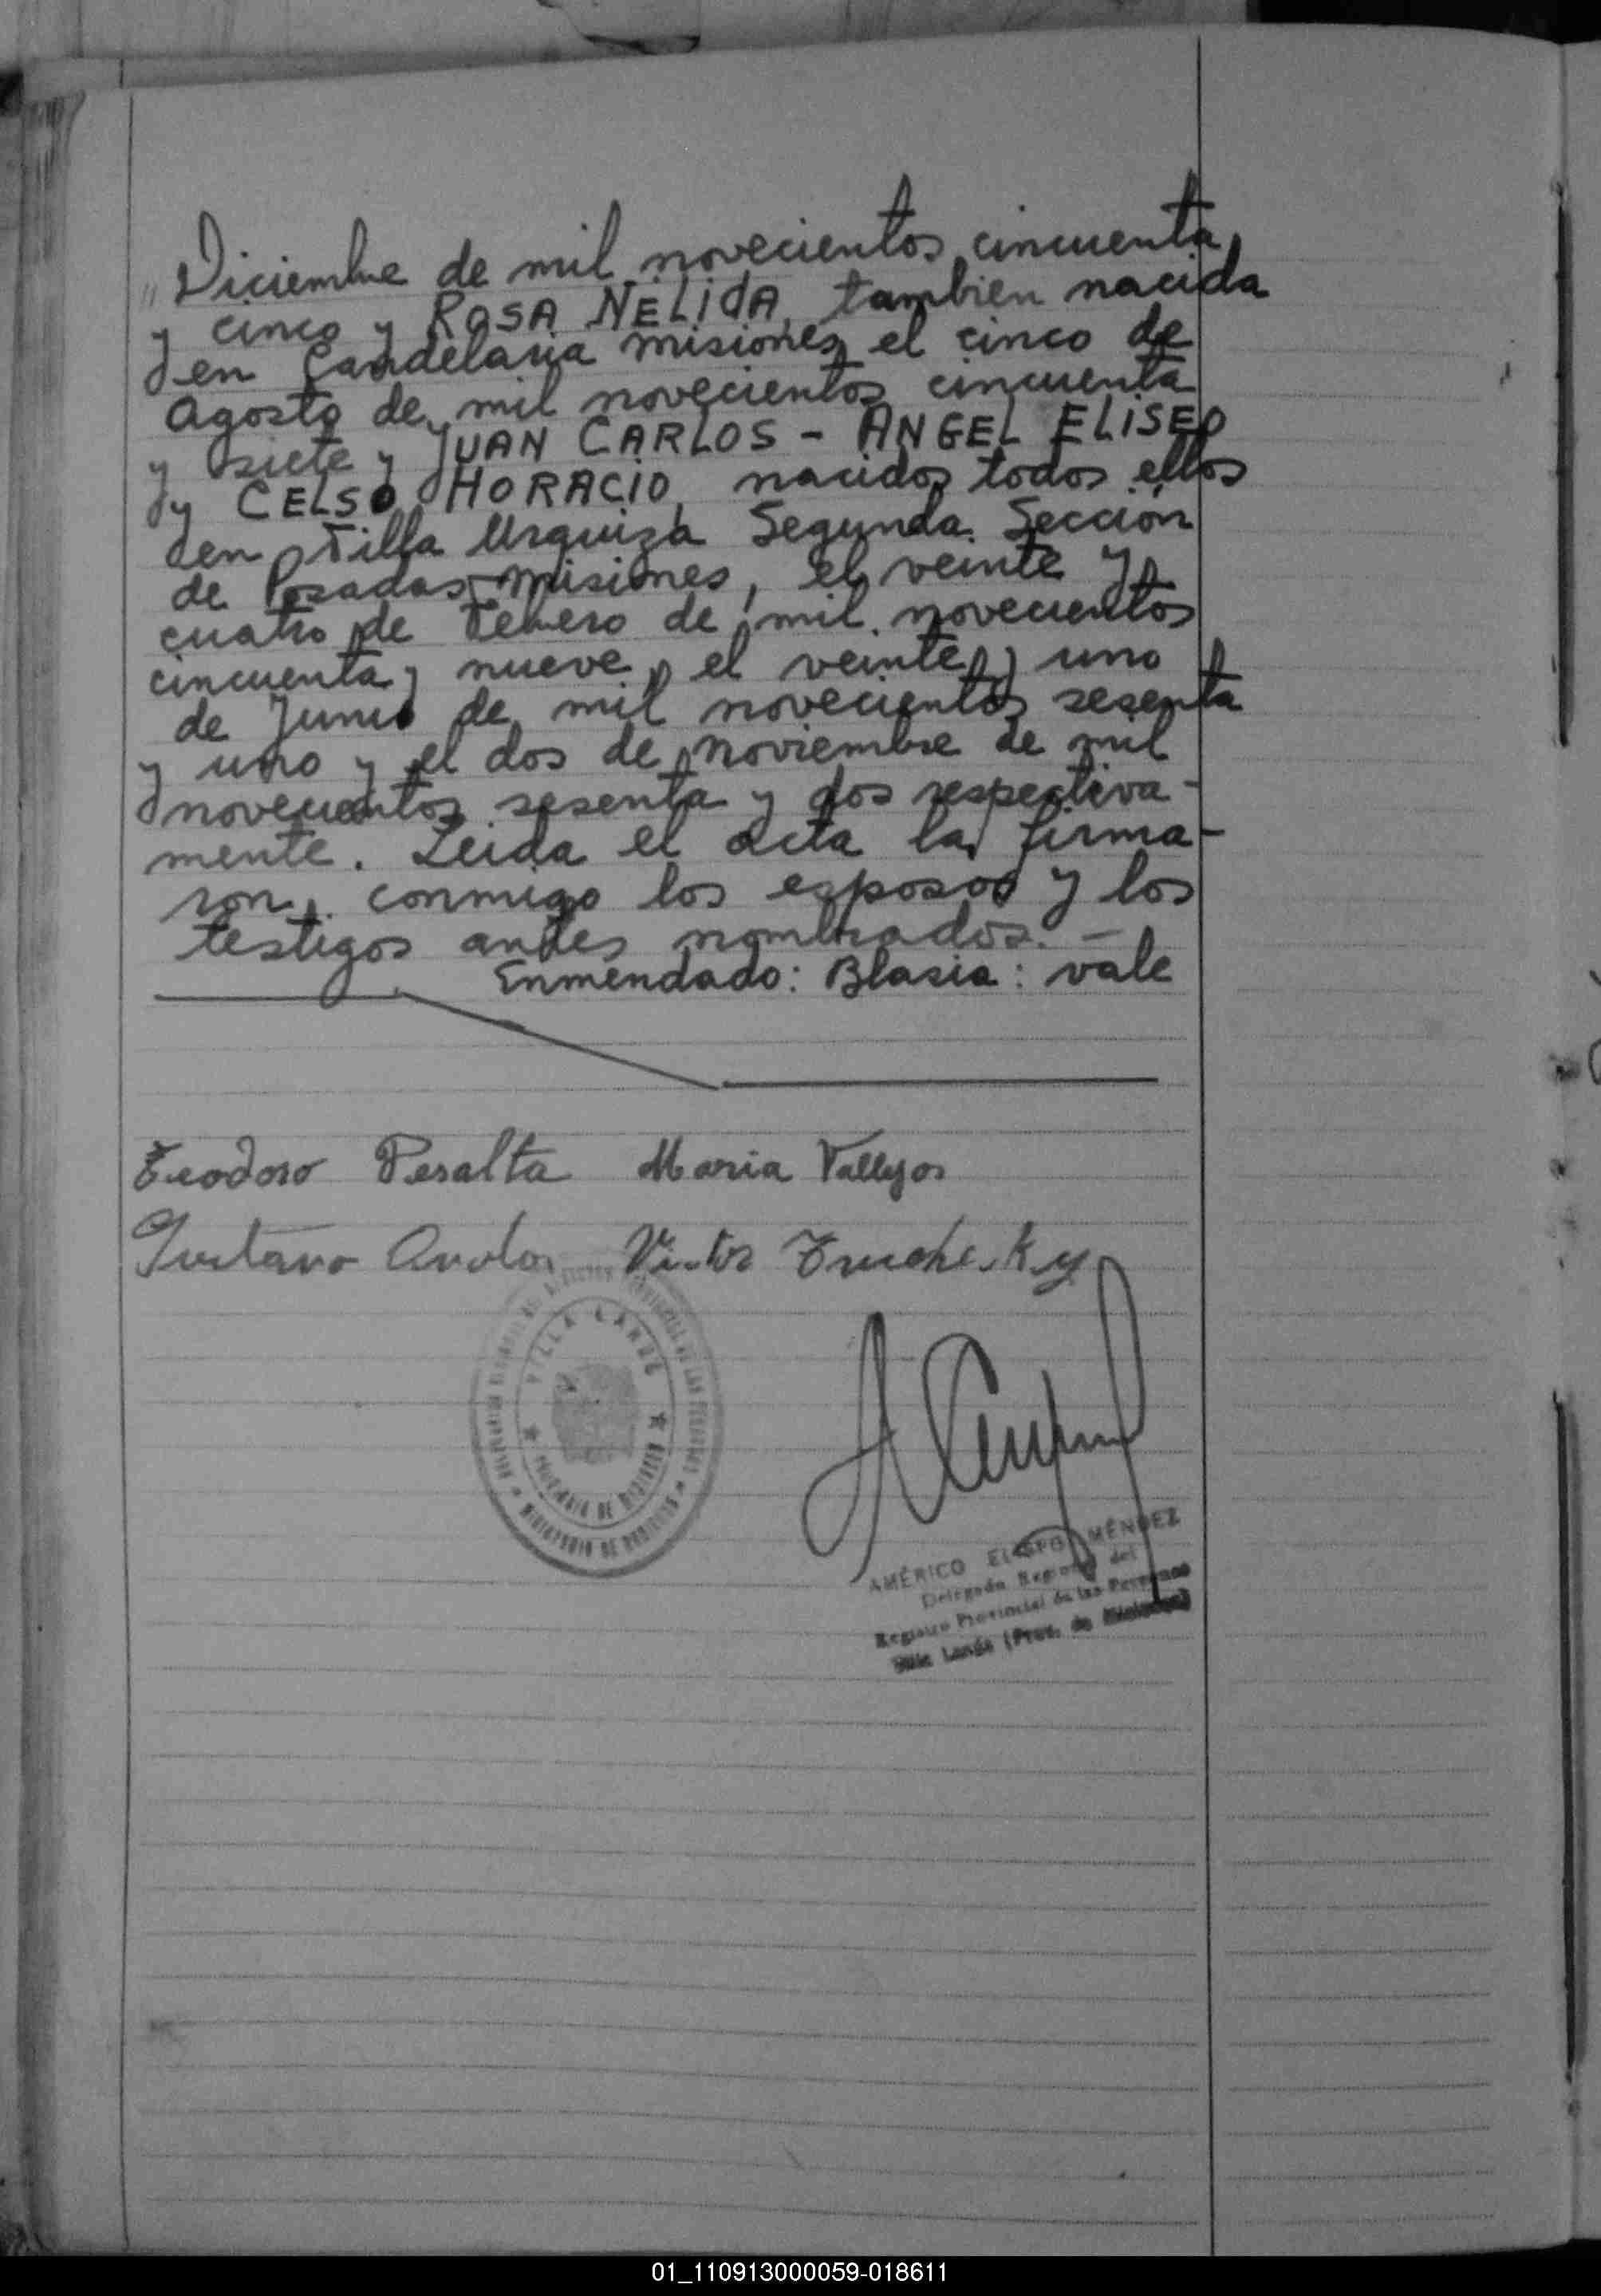 " Diciembre de mil novecientos cincuenta
y cinco y ROSA NELIDA, tambien nacida
en Candelaria Misiones el cinco de
Agosto de mil novecientos cincuenta
y siete y JUAN CARLOS - ANGEL ELISEO
y CELSO HORACIO, nacidos todos ellos
en Villa Urquiza Segunda Sección
de Posadas, Misiones, el veinte y
cuatro de Febrero de mil novecientos
cincuenta y nueve, el veinte y uno
de Junio de mil novecientos sesenta
y uno y el dos de Noviembre de mil
novecientos sesenta y dos respectiva-
mente. Leida el acta la firma-
ron, conmigo los esposos y los
testigos antes nombrados. -
Enmendado: Blasia: vale
Teodoro Peralta Maria Vallejos
Gustavo Victor
VILLA LANUS
PROVINCIA DE MISIONES
MINISTERIO DE
AMÉRICO MÉNDEZ
Delegado Regional del
Registro Provincial de las Personas
Villa Lanús (Prov. de Misiones)
01_110913000059-018611